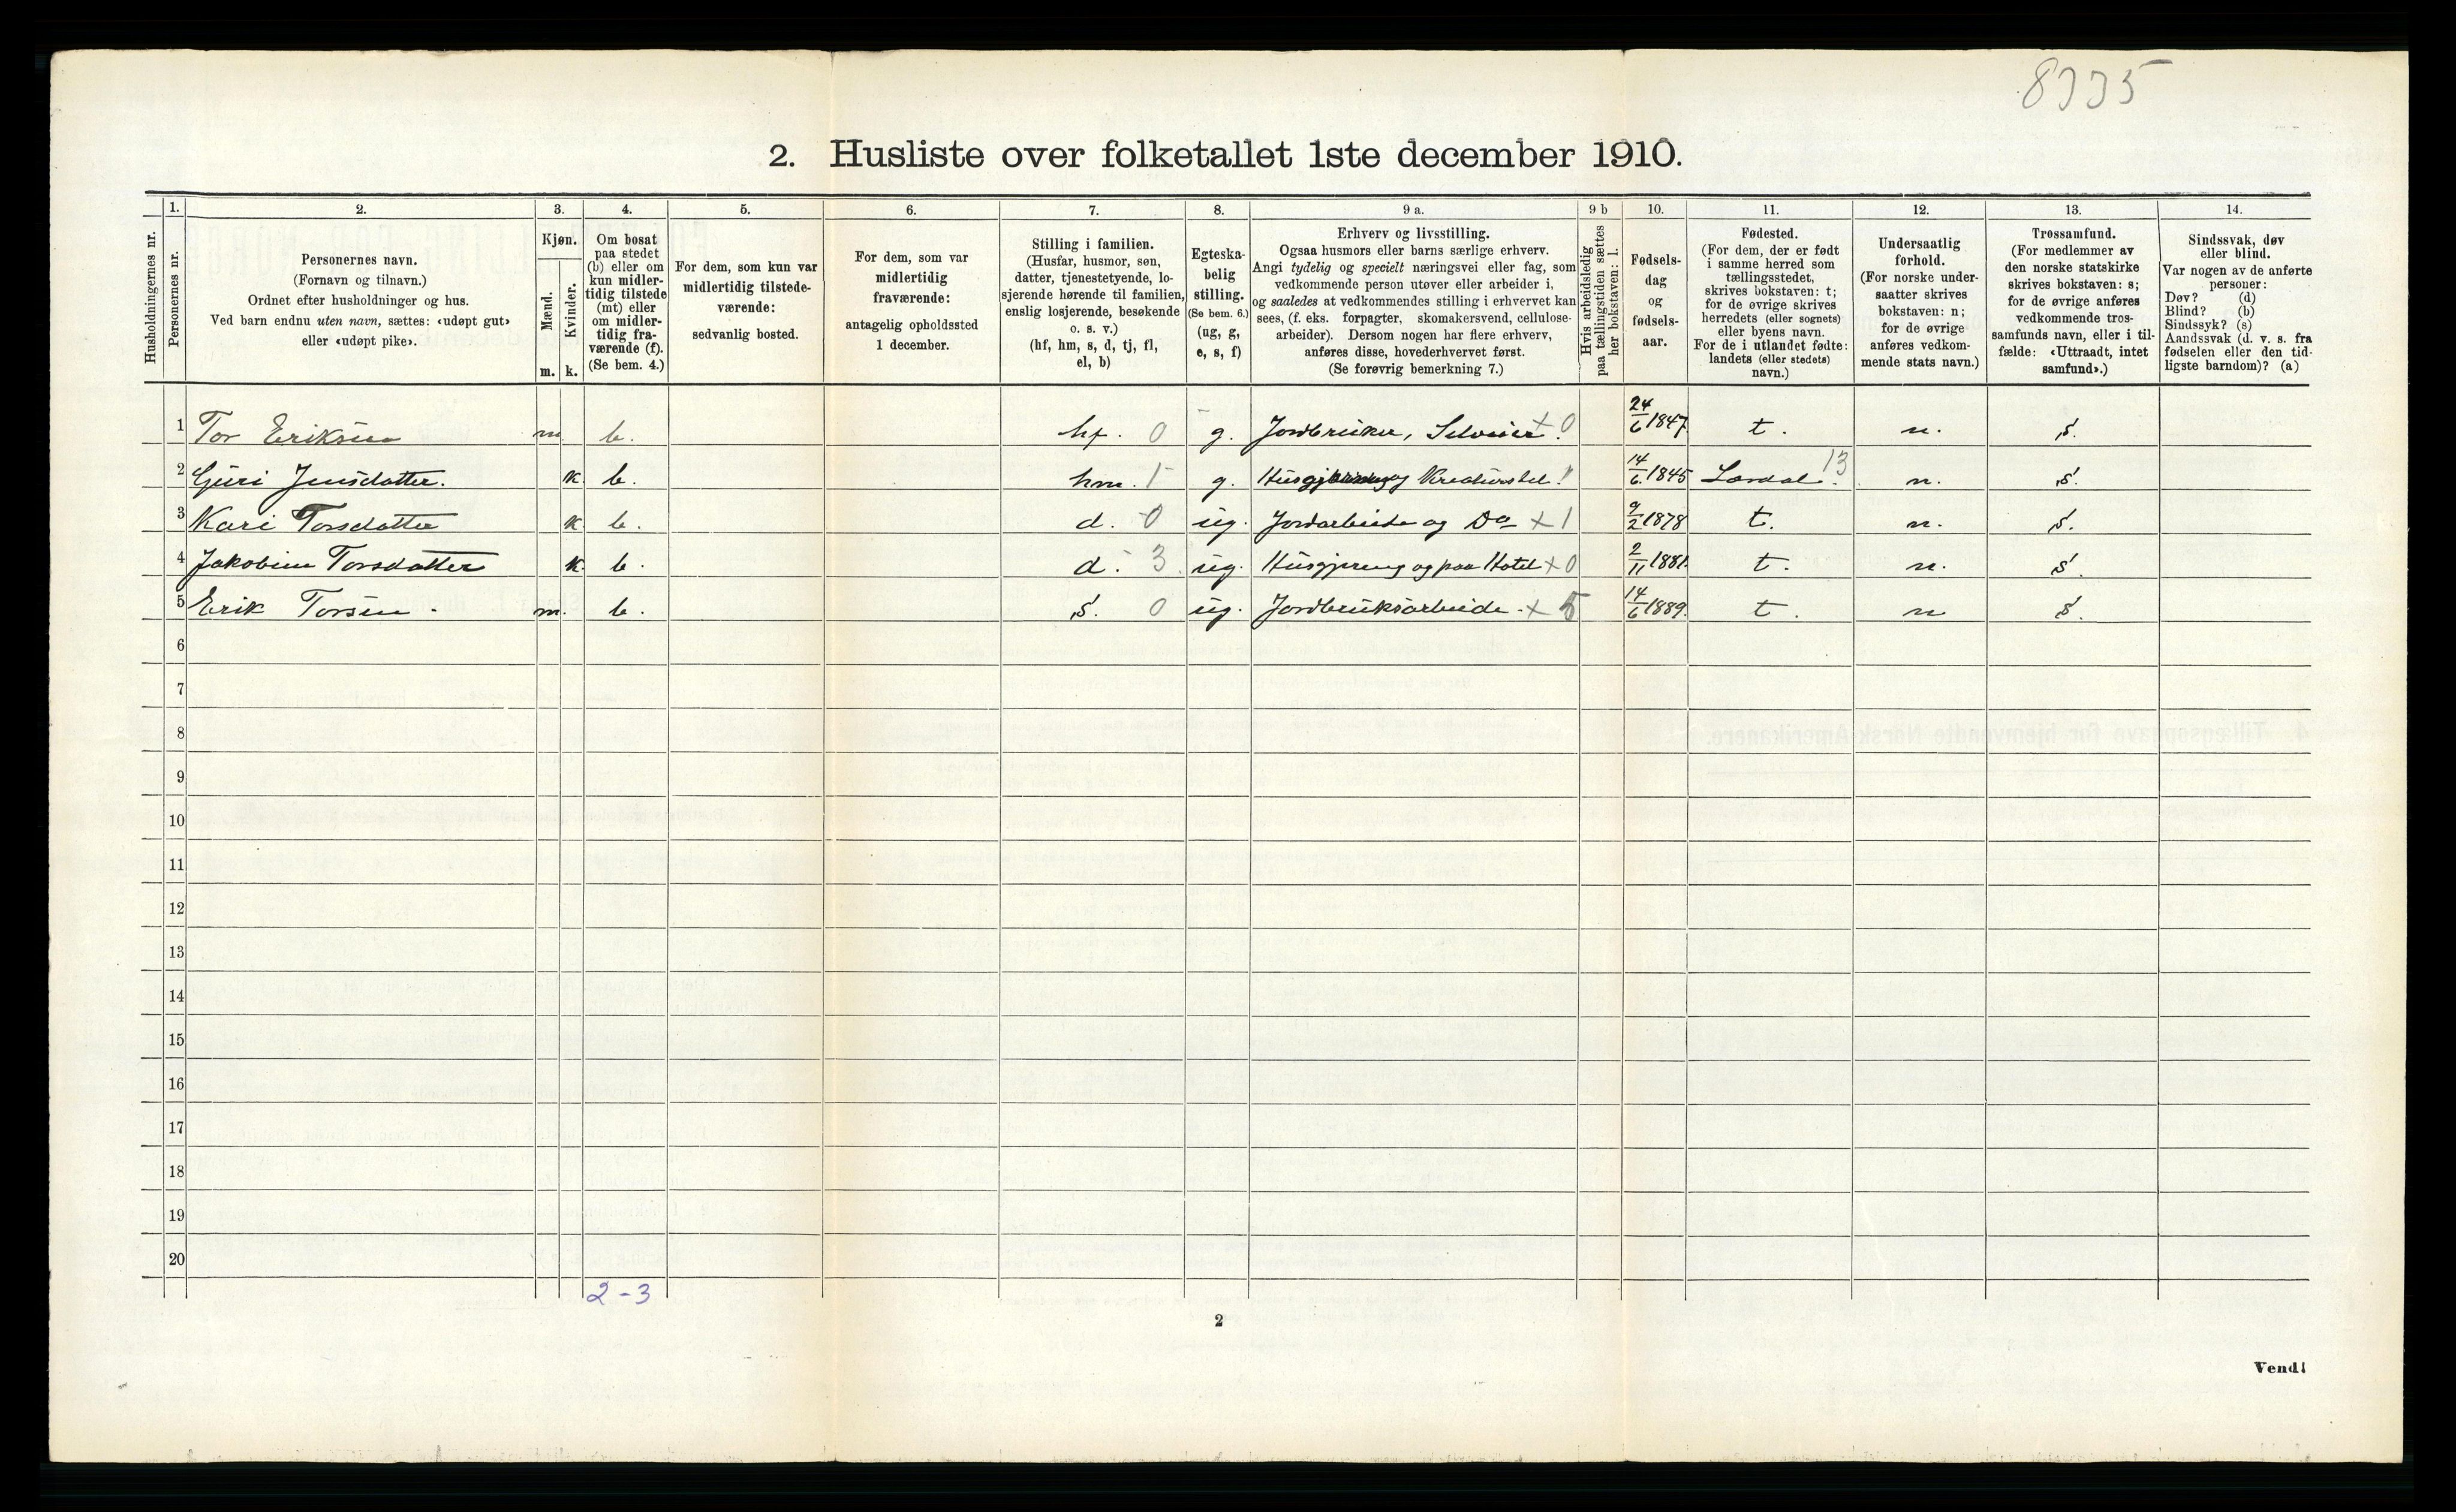 8335
2. Husliste over folketallet 1ste december 1910.
Husholdningernes nr.
1.
Personernes nr.
2.
Personernes navn.
(Fornavn og tilnavn.)
Ordnet efter husholdninger og hus.
Ved barn endnu uten navn, sættes: «udøpt gut»
eller «udøpt pike».
3.
Kjøn.
Mænd.
Kvinder.
m. k.
4.
Om bosat
paa stedet
(b) eller om
kun midler-
tidig tilstede
(mt) eller
om midler-
tidig fra-
værende (f).
(Se bem. 4.)
5.
For dem, som kun var
midlertidig tilstede-
værende:
sedvanlig bosted.
6.
For dem, som var
midlertidig
fraværende:
antagelig opholdssted
1 december.
7.
Stilling i familien.
(Husfar, husmor, søn,
datter, tjenestetyende, lo-
sjerende hørende til familien,
enslig losjerende, besøkende
o. s. v.)
(hf, hm, s, d, tj, fl,
el, b)
8.
Egteska-
belig
stilling.
(Se bem. 6.)
(ug, g,
e, s, f)
9 a.
Erhverv og livsstilling.
Ogsaa husmors eller barns særlige erhverv.
Angi tydelig og specielt næringsvei eller fag, som
vedkommende person utøver eller arbeider i,
og saaledes at vedkommendes stilling i erhvervet kan
sees, (f. eks. forpagter, skomakersvend, cellulose-
arbeider). Dersom nogen har flere erhverv,
anføres disse, hovederhvervet først.
(Se forøvrig bemerkning 7.)
9 b
Hvis arbeidsledig
paa tællingstiden sættes
her bokstaven: l.
10.
Fødsels-
dag
og
fødsels-
aar.
11.
Fødested.
(For dem, der er født
i samme herred som
tællingsstedet,
skrives bokstaven: t;
for de øvrige skrives
herredets (eller sognets)
eller byens navn.
For de i utlandet fødte:
landets (eller stedets)
navn.)
12.
Undersaatlig
forhold.
(For norske under-
saatter skrives
bokstaven: n;
for de øvrige
anføres vedkom-
mende stats navn.)
13.
Trossamfund.
(For medlemmer av
den norske statskirke
skrives bokstaven: s;
for de øvrige anføres
vedkommende tros-
samfunds navn, eller i til-
fælde: «Uttraadt, intet
samfund».)
14.
Sindssvak, døv
eller blind.
Var nogen av de anførte
personer:
Døv? (d)
Blind? (b)
Sindssyk? (s)
Aandssvak (d. v. s. fra
fødselen eller den tid-
ligste barndom)? (a)
1 Tor Eriksen m b. hf. 0 g. Jordbruker, Selveier x 0 24/6 1847 t. n. s.
2 Guri Jensdatter. k b. hm. 1 g. Husgjerning og Kreaturstel. 14/6 1845 Lærdal 13 n. s.
3 Kari Torsdatter k. b. d. 0 ug. Jordarbeide og Do x 1 9/2 1878 t. n. s.
4 Jakobine Torsdatter k. b. d. 3 ug. Husgjerning og paa Hotel x 0 2/11 1881. t. n. s.
5 Erik Torsen m. b. s. 0 ug. Jordbruksarbeide x 5 14/6 1889. t. n s.
6
7
8
9
10
11
12
13
14
15
16
17
18
19
20
2-3
2
Vend!